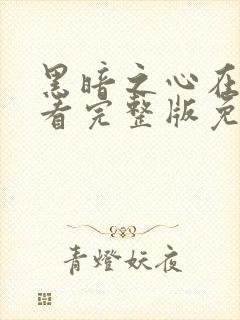 黑暗之心在
看完整版免
青燈妖夜